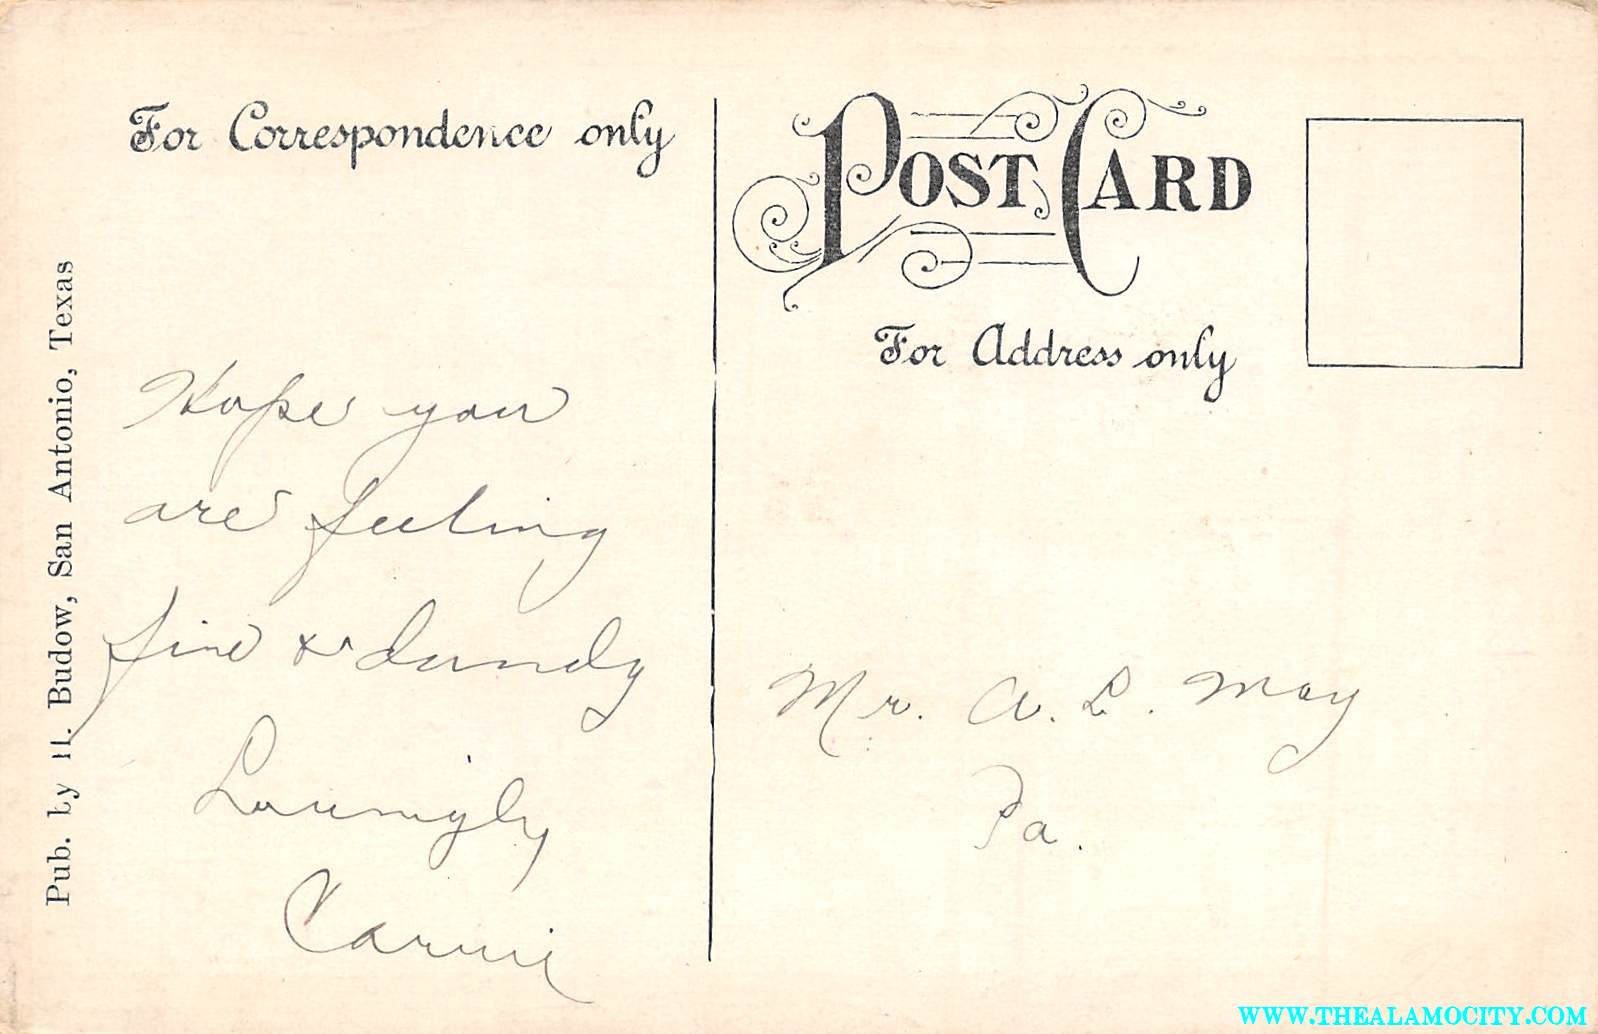 For Correspondence only
POST CARD
For Address only
Pub. by H. Budow, San Antonio, Texas
Hope you
are feeling
fine & dandy
Lovingly
Carrie
Mr. A. L. May
Pa.
WWW.THEALAMOCITY.COM